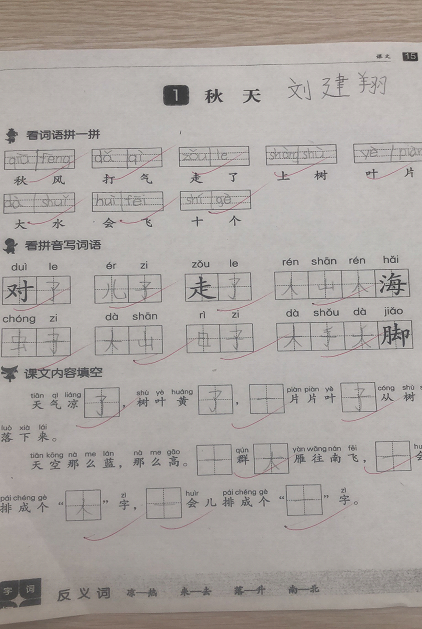 课文 15
1 秋 天 刘建翔
看词语拼一拼
qiū fēng dǎ qì zǒu le shàng shù yè piàn
秋 风 打 气 走 了 上 树 叶 片
dà shuǐ huì fēi shí gè
大 水 会 飞 十 个
看拼音写词语
duì le ér zi zǒu le rén shān rén hǎi
对 了 儿 子 走 了 人 山 人 海
chóng zi dà shān rì zi dà shǒu dà jiǎo
虫 子 大 山 日 子 大 手 大 脚
课文内容填空
tiān qì liáng shù yè huáng piàn piàn yè cóng shù
天 气 凉 了 , 树 叶 黄 了 , 一 片 片 叶 子 从 树
luò xià lái
落 下 来 。
tiān kōng nà me lán nà me gāo qún yàn wǎng nán fēi
天 空 那 么 蓝 , 那 么 高 。 一 群 大 雁 往 南 飞 , 一 会
pái chéng gè zì huìr pái chéng gè zì
排 成 个 “ 人 ” 字 , 一 会 儿 排 成 个 “ 一 ” 字 。
字 词 反 义 词 凉—热 来—去 落—升 南—北